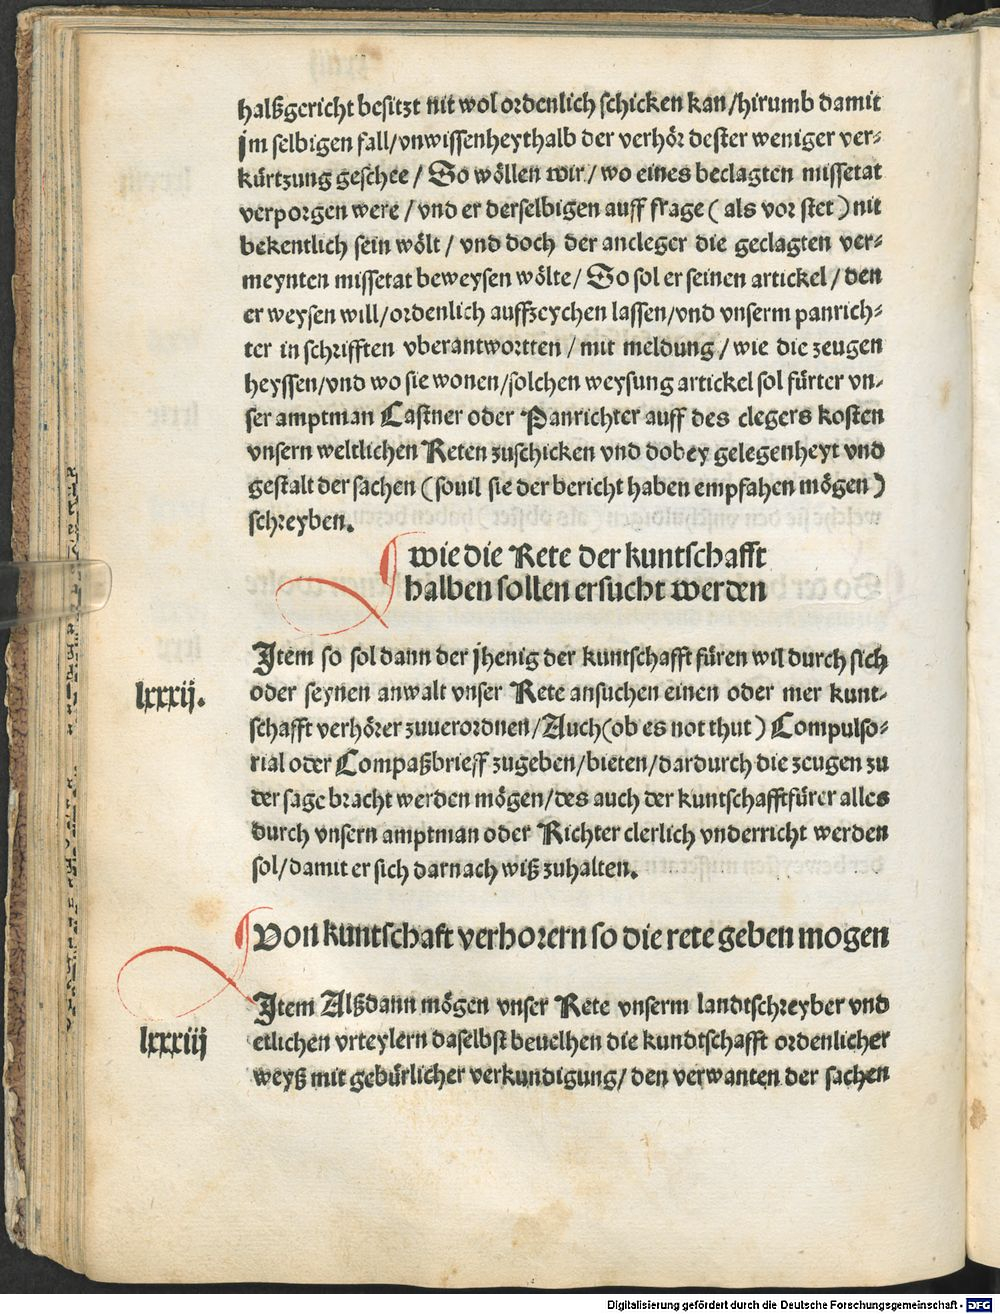 halßgericht besitzt nit wol ordenlich schicken kan/hirumb damit
jm selbigen fall/vnwissenheythalb der verhör dester weniger ver⸗
kürtzung geschee / So wöllen wir / wo eines beclagten missetat
verporgen were / vnd er derselbigen auff frage ( als vor stet ) nit
bekentlich sein wölt / vnd doch der ancleger die geclagten ver⸗
meynten missetat beweysen wölte/ So sol er seinen artickel / den
er weysen will/ordenlich auffzeychen lassen/vnd vnserm panrich⸗
ter in schrifften vberantwortten / mit meldung / wie die zeugen
heyssen/vnd wo sie wonen/solchen weysung artickel sol fürter vn⸗
ser amptman Castner oder Panrichter auff des clegers kosten
vnsern weltlichen Reten zuschicken vnd dobey gelegenheyt vnd
gestalt der sachen ( souil sie der bericht haben empfahen mögen )
schreyben.
wie die Rete der kuntschafft
halben sollen ersucht werden
Item so sol dann der jhenig der kuntschafft füren wil durch sich
lxxxij.
oder seynen anwalt vnser Rete ansuchen einen oder mer kunt⸗
schafft verhörer zuuerordnen/Auch(ob es not thut ) Compulso⸗
rial oder Compaßbrieff zugeben/bieten/dardurch die zeugen zu
der sage bracht werden mögen/des auch der kuntschafftfürer alles
durch vnsern amptman oder Richter clerlich vnderricht werden
sol/damit er sich darnach wiß zuhalten.
Von kuntschaft verhorern so die rete geben mogen
Item Alßdann mögen vnser Rete vnserm landtschreyber vnd
lxxxiij
etlichen vrteylern daselbst beuelhen die kundtschafft ordenlicher
weyß mit gebürlicher verkundigung/ den verwanten der sachen
Digitalisierung gefördert durch die Deutsche Forschungsgemeinschaft - DFG